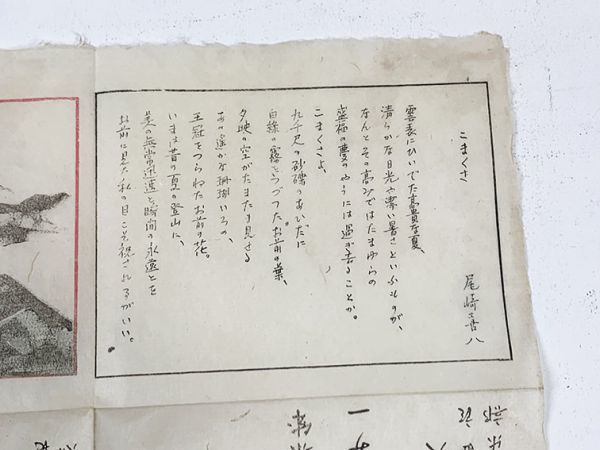 こまくさ
尾崎喜八
雲表にひいでた高貴な夏、
清らかな日光や潔い暑さといふものが、
なんとその高みではたまゆらの
夢のやうには過ぎ去ることか。
こまくさよ、
九千尺の砂礫のあひだに
白緑の霧をつづつたお前の葉、
夕映の空がたまたま見せる
あの遥かな珊瑚いろの、
王冠をつらねたお前の花。
いまは昔の夏の登山に、
美の無常迅速と瞬間の永遠とを
お前に見た私の目こそ祝されるがいい。
一